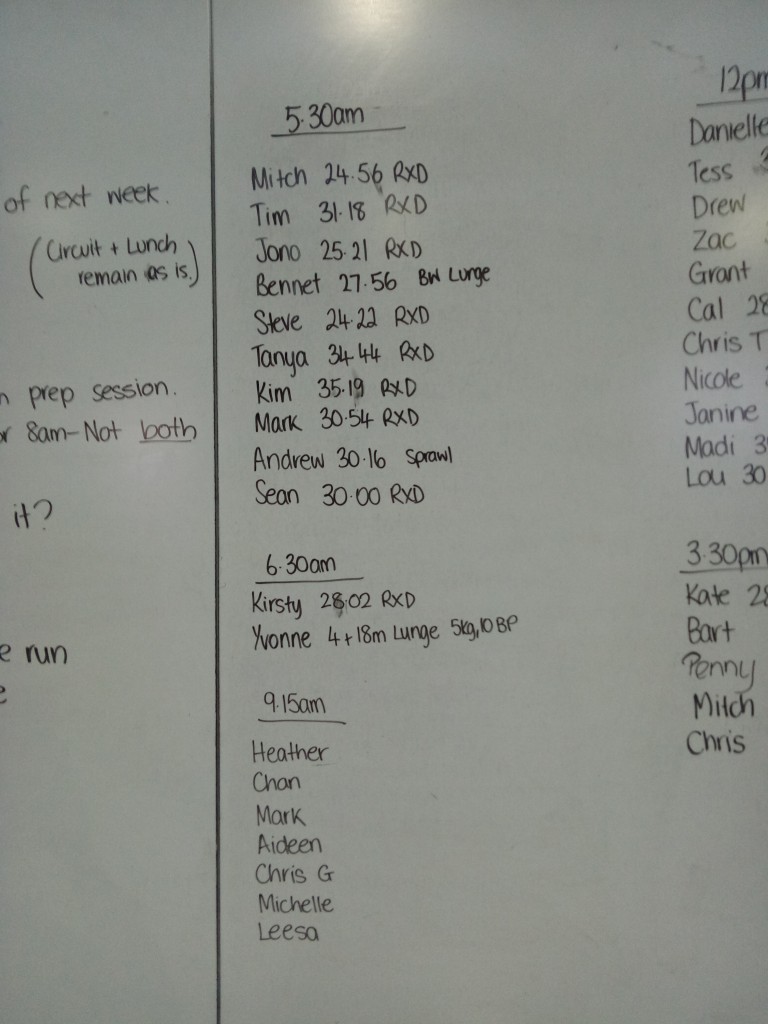 of next week.
(Circuit + Lunch
remain as is.)
prep session.
8am- Not both
it?
run
5.30am
Mitch 24.56 RXD
Tim 31.18 RXD
Jono 25.21 RXD
Bennet 27.56 BW Lunge
Steve 24.22 RXD
Tanya 34.44 RXD
Kim 35.19 RXD
Mark 30.54 RXD
Andrew 30.16 Sprawl
Sean 30.00 RXD
6.30am
Kirsty 28.02 RXD
Yvonne 4+18m Lunge 5kg,10 BP
9.15am
Heather
Chan
Mark
Aideen
Chris G
Michelle
Leesa
12pm
Danielle
Tess
Drew
Zac
Grant
Cal 28
Chris T
Nicole
Janine
Madi
Lou 30
3.30pm
Kate 28
Bart
Penny
Mitch
Chris